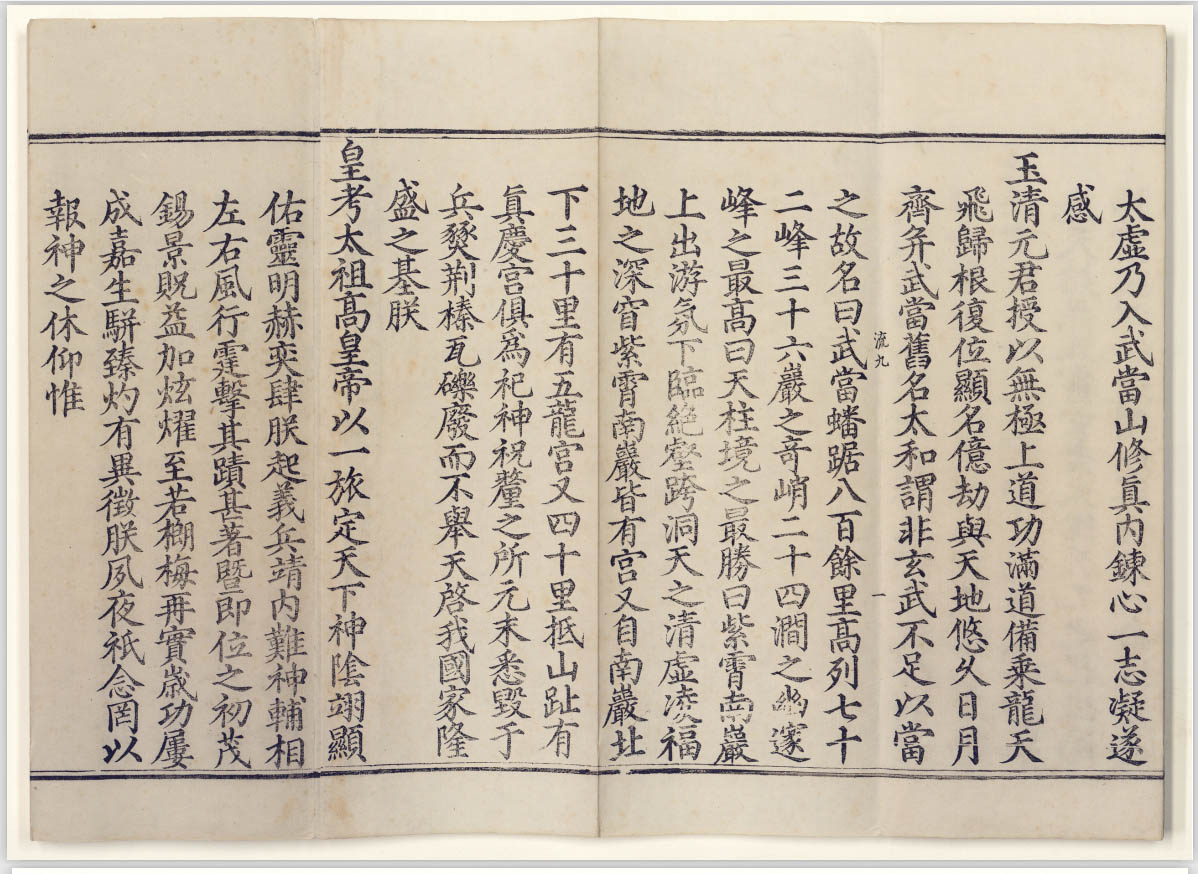 太虛乃入武當山修眞内鍊心一志凝遂
感
玉清元君授以無極上道功滿道備乘龍天
飛歸根復位顯名億劫與天地悠久日月
齊并武當舊名太和謂非玄武不足以當
流九
一
之故名曰武當蟠踞八百餘里高列七十
二峰三十六巖之竒峭二十四澗之幽邃
峰之最高曰天柱境之最勝曰紫霄南巖
上出游氛下臨絶壑跨洞天之清虛凌福
地之深窅紫霄南巖皆有宫又自南巖北
下三十里有五龍宫又四十里抵山趾有
眞慶宫俱爲祀神祝釐之所元末悉毁于
兵燹荆榛瓦礫廢而不舉天啓我國家隆
盛之基朕
皇考太祖髙皇帝以一旅定天下神陰翊顯
佑靈明赫奕肆朕起義兵靖内難神輔相
左右風行霆擊其蹟甚著暨即位之初茂
錫景貺益加炫燿至若榔梅再實嵗功屢
成嘉生駢臻灼有異徴朕夙夜祗念罔以
報神之休仰惟